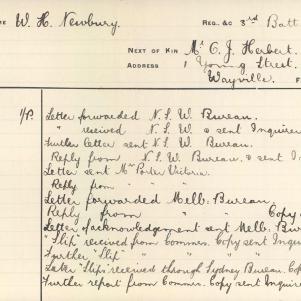 W. H. Newbury. Reg. &c 3rd Batt
Next of Kin Mr C. J. Herbert.
Address 1 Young Street.
Wayville.
Letter forwarded N. S. W. Bureau.
" received N. S. W. & sent Inquirer
Further letter sent N. S. W. Bureau.
Reply from N. S. W. Bureau. & sent I
Letter sent Mrs Porter Victoria.
Reply from " "
Letter forwarded Melb: Bureau
Reply from " " Copy
Letter of acknowledgement sent Melb: Bur
"Slip" received from Commrs. Copy sent Inqui
Further "Slip" " " " "
Later "Slips" received through Sydney Bureau. Cop
Further report from Commrs. Copy sent Inquire